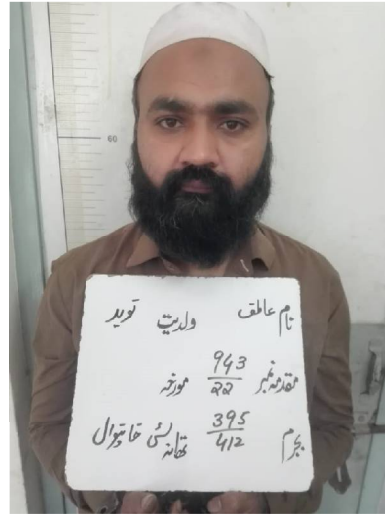 60
نام عاطف ولدیت نوید
مقدمہ نمبر 943/22 مورخہ
بجرم 395/412 تھانہ سٹی خانیوال